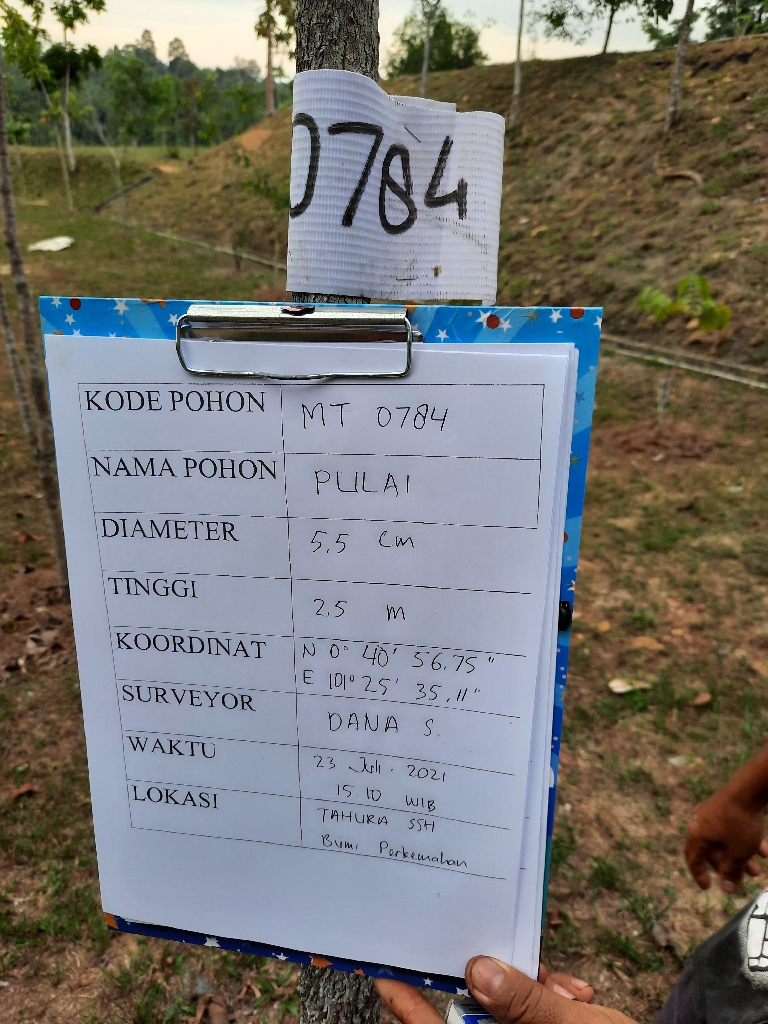 0784
KODE POHON MT 0784
NAMA POHON PULAI
DIAMETER 5,5 cm
TINGGI 2,5 m
KOORDINAT N 0° 40' 56.75"
E 101° 25' 35,11"
SURVEYOR DANA S.
WAKTU 23 Juli 2021
15.10 WIB
LOKASI TAHURA SSH
Bumi Perkemahan